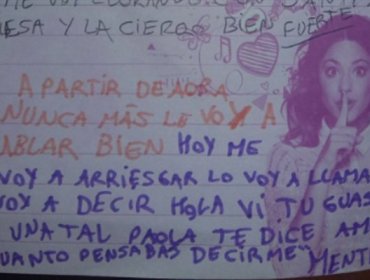 VOY LLORANDO
ESA Y LA CIERGO BIEN FUERTE
A PARTIR DE AORA
NUNCA MÁS LE VOY A
ABLAR BIEN HOY ME
VOY A ARRIESGAR LO VOY A LLAMA
VOY A DECIR HOLA VI TU GUAS
UNA TAL PAOLA TE DICE AM
UANTO PENSABAS DECIRME" MENTI